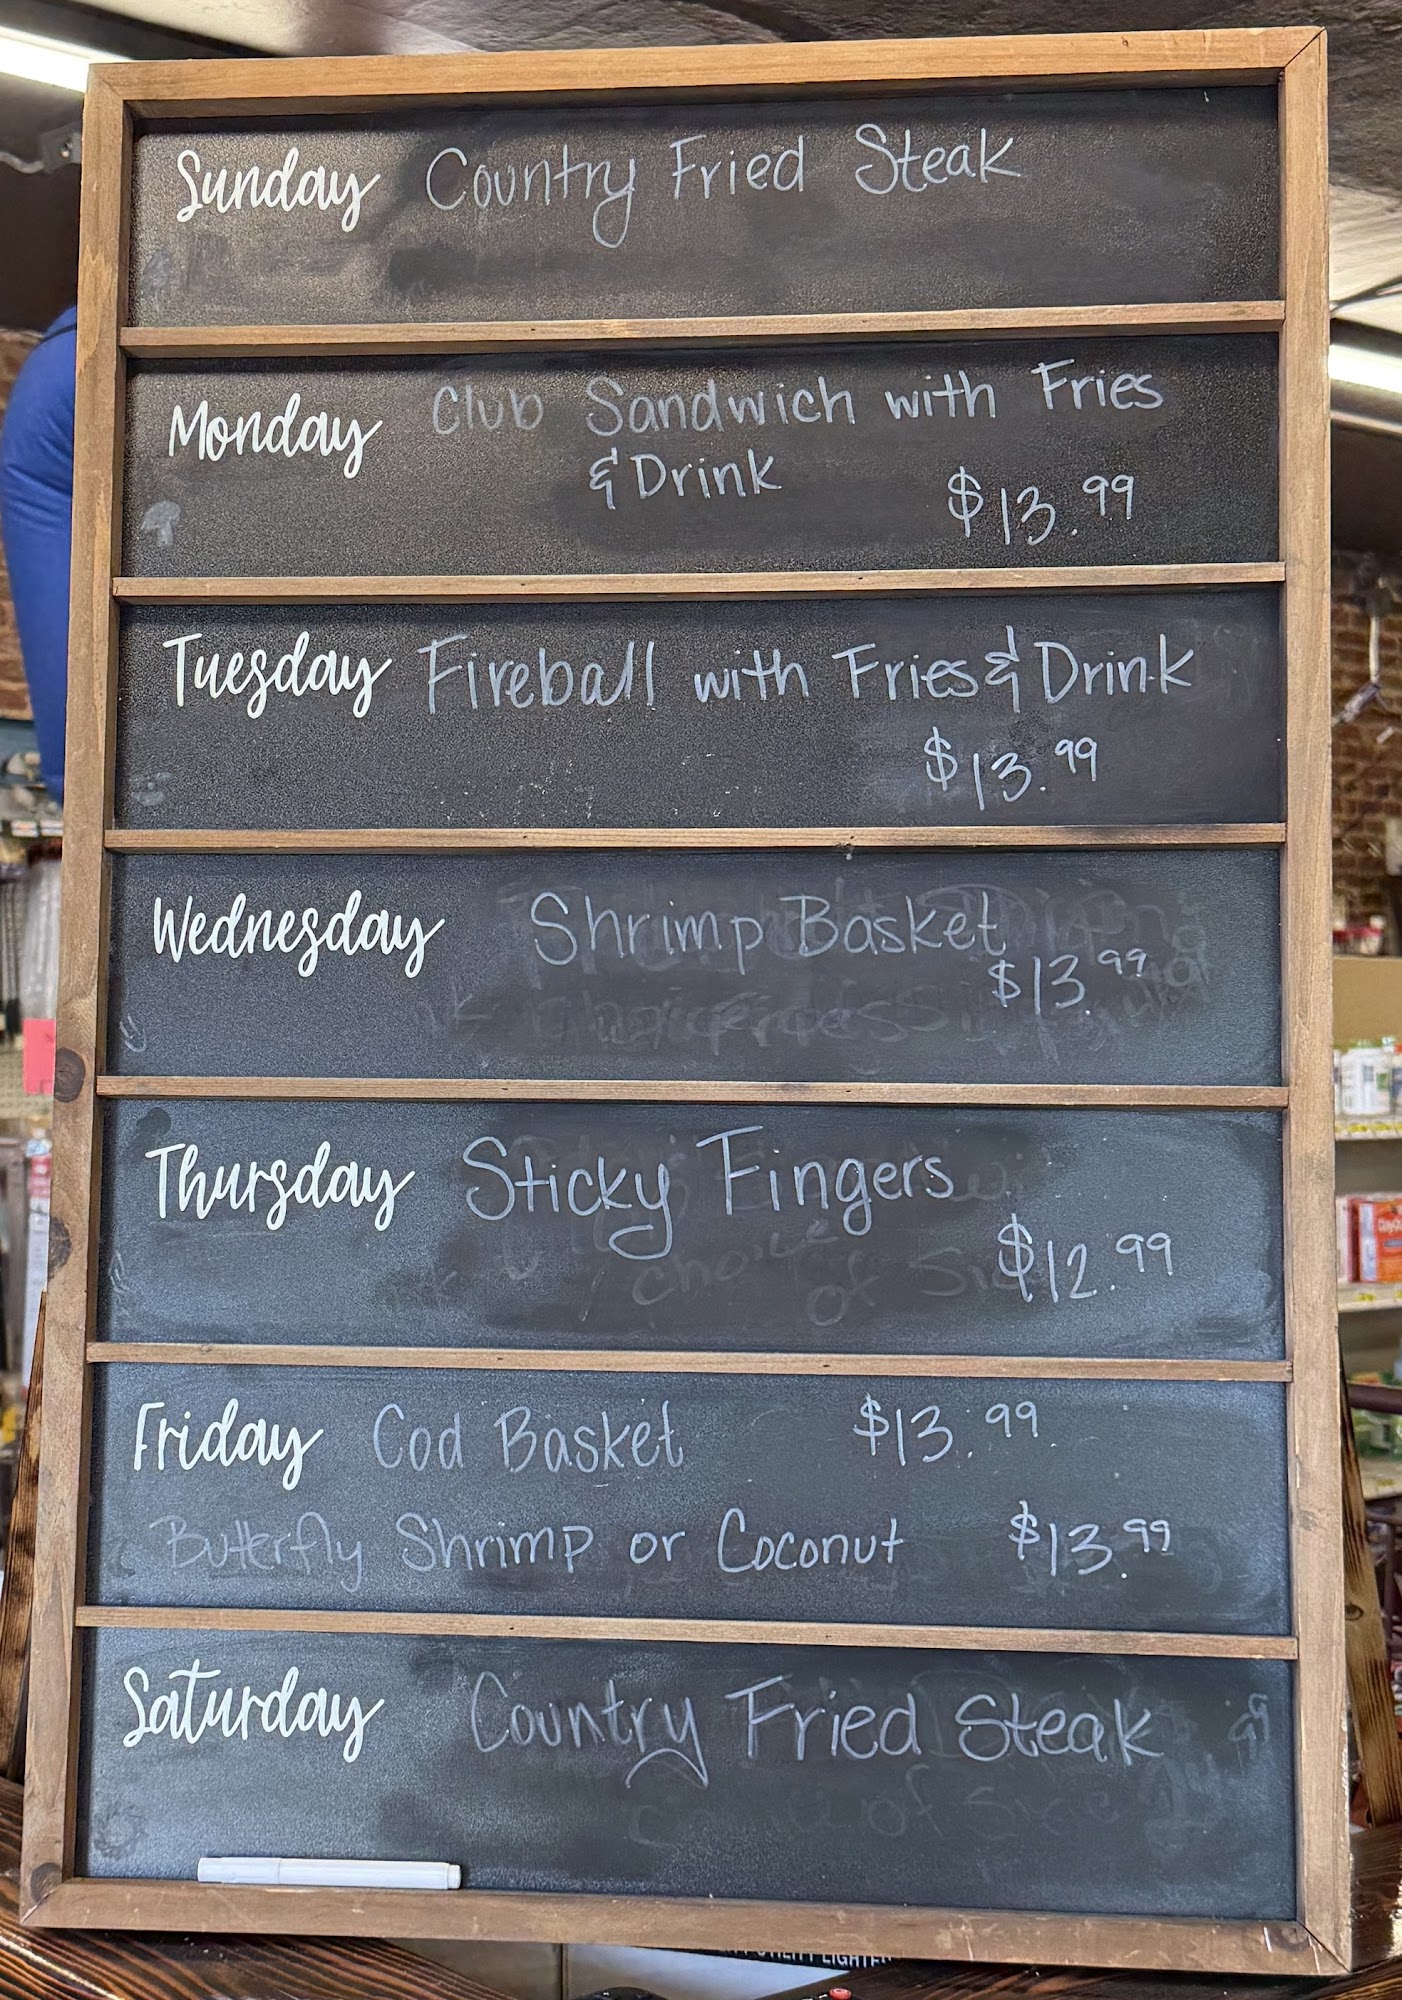 Sunday Country Fried Steak
Monday Club Sandwich with Fries
& Drink $13.99
Tuesday Fireball with Fries & Drink
$13.99
Wednesday Shrimp Basket
$13.99
Thursday Sticky Fingers
choice
of $12.99
Friday Cod Basket $13.99
Butterfly Shrimp or Coconut $13.99
Saturday Country Fried Steak